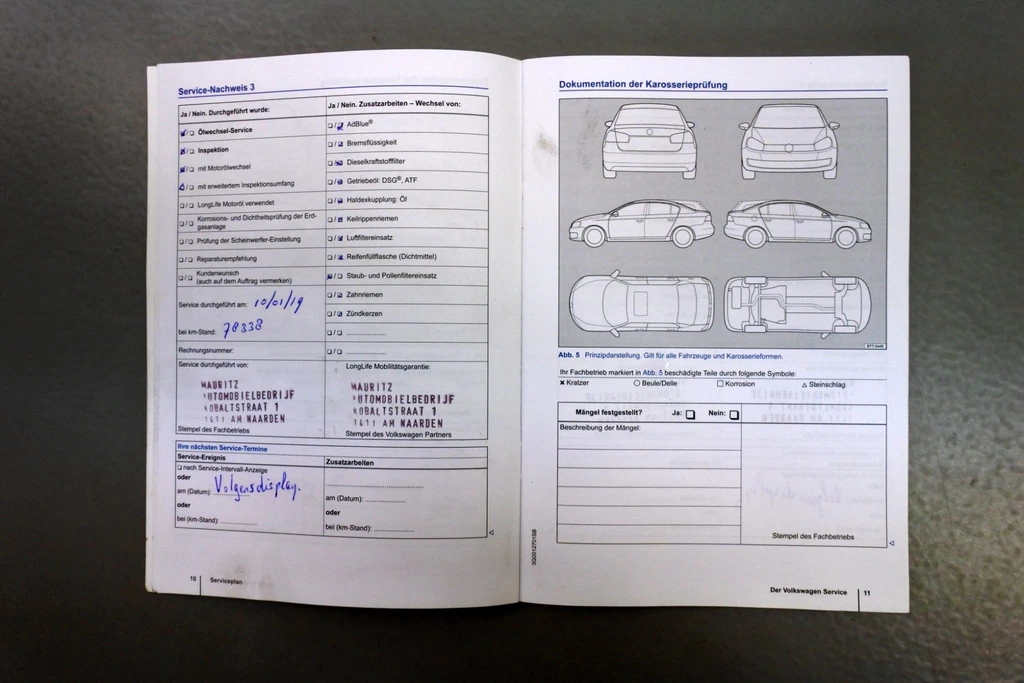 Service-Nachweis 3
Ja / Nein. Durchgeführt wurde:
Ölwechsel-Service
Inspektion
mit Motorölwechsel
mit erweitertem Inspektionsumfang
LongLife Motoröl verwendet
Korrosions- und Dichtheitsprüfung der Erd-
gasanlage
Prüfung der Scheinwerfer-Einstellung
Reparaturempfehlung
Kundenwunsch
(auch auf dem Auftrag vermerken)
Service durchgeführt am: 10/01/19
bei km-Stand: 78338
Rechnungsnummer:
Service durchgeführt von:
MAURITZ
AUTOMOBIELBEDRIJF
KOBALTSTRAAT 1
1411 AM NAARDEN
Stempel des Fachbetriebs
Ja / Nein. Zusatzarbeiten – Wechsel von:
AdBlue®
Bremsflüssigkeit
Dieselkraftstofffilter
Getriebeöl: DSG®, ATF
Haldexkupplung: Öl
Keilrippenriemen
Luftfiltereinsatz
Reifenfüllflasche (Dichtmittel)
Staub- und Pollenfiltereinsatz
Zahnriemen
Zündkerzen
LongLife Mobilitätsgarantie:
MAURITZ
AUTOMOBIELBEDRIJF
KOBALTSTRAAT 1
1411 AM NAARDEN
Stempel des Volkswagen Partners
Ihre nächsten Service-Termine
Service-Ereignis
nach Service-Intervall-Anzeige
oder
am (Datum): Volgens display.
oder
bei (km-Stand):
Zusatzarbeiten
am (Datum):
oder
bei (km-Stand):
10 Serviceplan
Dokumentation der Karosserieprüfung
Abb. 5 Prinzipdarstellung. Gilt für alle Fahrzeuge und Karosserieformen.
Ihr Fachbetrieb markiert in Abb. 5 beschädigte Teile durch folgende Symbole:
Kratzer
Beule/Delle
Korrosion
Steinschlag
Mängel festgestellt? Ja: Nein:
Beschreibung der Mängel:
Stempel des Fachbetriebs
Der Volkswagen Service 11